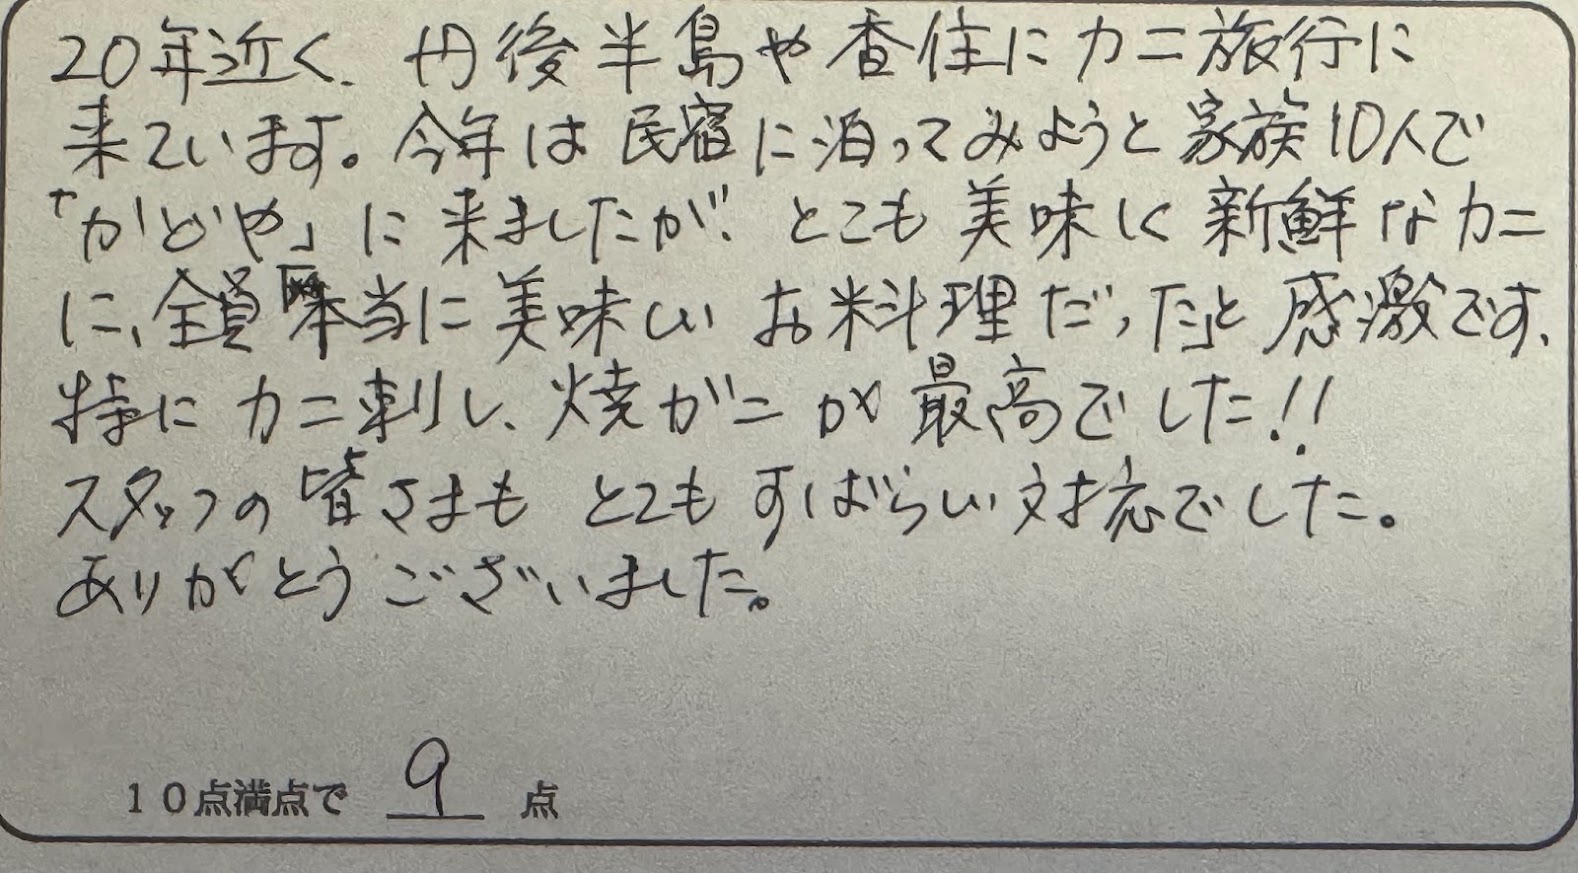 20年近く、丹後半島や香住にカニ旅行に
来ています。今年は民宿に泊ってみようと家族10人で
「かどや」に来ましたが、とても美味しく新鮮なカニ
に、全員「本当に美味しいお料理だった」と感激です。
特にカニ刺し、焼ガニが最高でした!!
スタッフの皆さまもとてもすばらしい対応でした。
ありがとうございました。
10点満点で 9 点